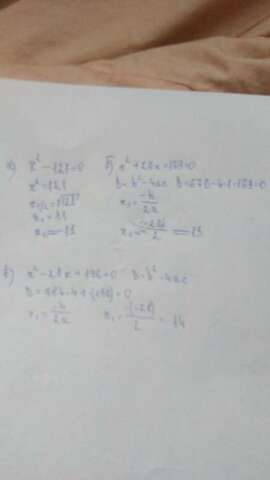 а) x² - 121 = 0
x² = 121
x₁,₂ = √121
x₁ = 11
x₂ = -11
б) x² + 26x + 169 = 0
D = b² - 4ac D = 676 - 4·1·169 = 0
x₁ = -b/2a
x₁ = -26/2 = -13
в) x² - 28x + 196 = 0 D = b² - 4ac
D = 784 - 4·1·(196) = 0
x₁ = -b/2a x₁ = -(-28)/2 = 14